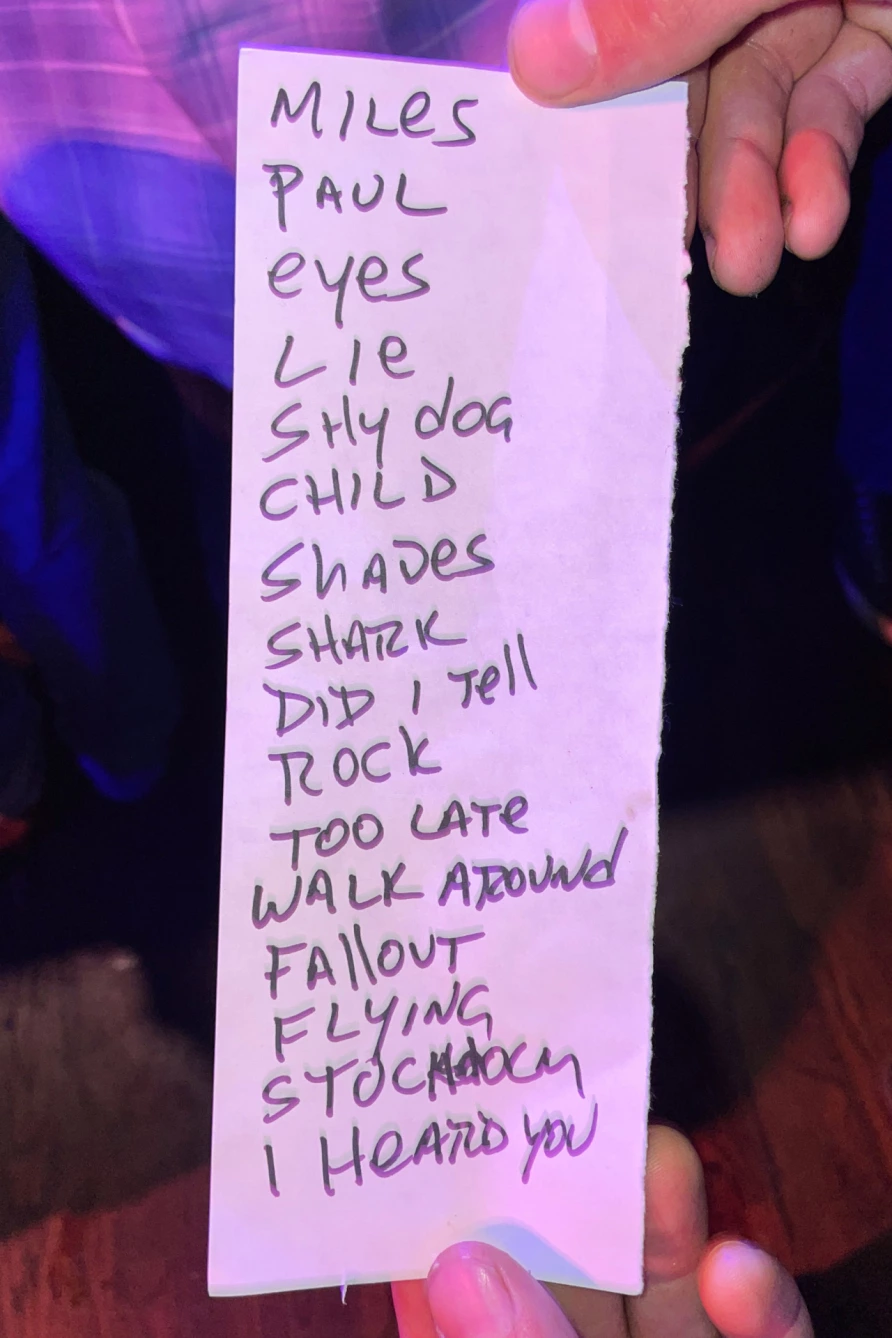 MILes
PAUL
eyes
Lie
SHy dog
CHILD
SHADes
SHARK
DiD I Tell
ROCK
TOO LATe
WALK AROUNd
FAllOUT
FLYING
I HeARD YOU